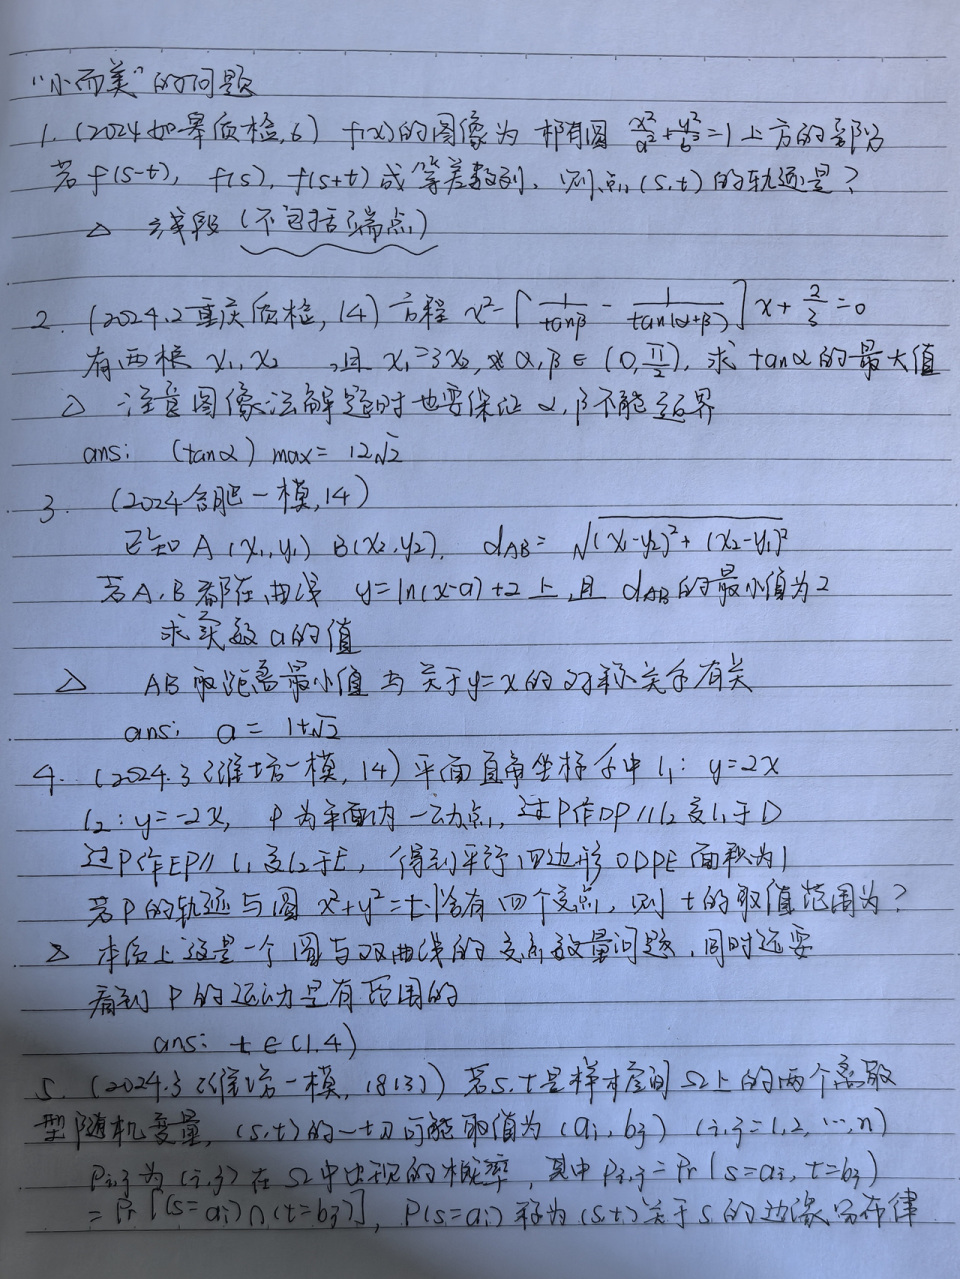 “小而美”的问题
1. (2024如皋质检,6) f(x)的图像为 椭圆 x²/a²+y²/b²=1 上方的部分
若 f(s-t), f(s), f(s+t) 成等差数列, 则点(s,t)的轨迹是?
△ 线段 (不包括端点)
2. (2024.2重庆质检,14) 方程 x²-[1/tanβ - 1/tan(α+β)]x+2/3=0
有两根 x₁,x₂ ,且 x₁=3x₂, α,β∈(0,π/2), 求 tanα的最大值
△ 注意图像法解题时也要保证 α,β不能越界
ans: (tanα)max= 12√2
3. (2024合肥一模,14)
已知 A(x₁,y₁) B(x₂,y₂), dAB= √(x₁-y₂)²+(x₂-y₁)²
若A,B都在曲线 y=ln(x-a)+2上,且 dAB的最小值为2
求实数a的值
△ AB 距离最小值与关于y=x的对称关系有关
ans: a= 1+√2
4. (2024.3潍坊一模,14) 平面直角坐标系中 l₁: y=2x
l₂: y=-2x, P为平面内一动点, 过P作DP∥l₂交l₁于D
过P作EP∥l₁交l₂于E, 得到平行四边形ODPE面积为1
若P的轨迹与圆 x²+y²=t恰有四个交点, 则t的取值范围为?
△ 本质上这是一个圆与双曲线的交点数量问题, 同时还要
看到P的运动是有范围的
ans: t∈(1,4)
5. (2024.3潍坊一模,18(3)) 若s,t是样本空间Ω上的两个离散
型随机变量, (s,t)的一切可能取值为(ai,bj) (i,j=1,2,…,n)
Pi,j为(i,j)在Ω中出现的概率, 其中Pi,j=Pr(s=ai,t=bj)
=Pr[(s=ai)∩(t=bj)], P(s=ai)称为(s,t)关于s的边缘分布律